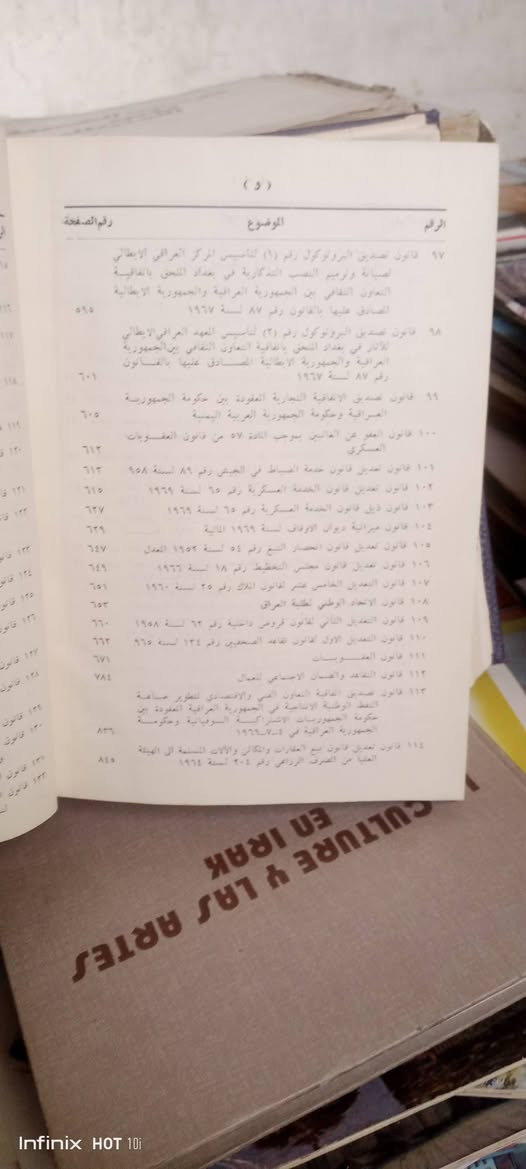 ( و )
الرقم الموضوع رقم الصفحة
٩٧ قانون تصديق البروتوكول رقم (١) لتأسيس المركز العراقي الايطالي
لصيانة وترميم النصب التذكارية في بغداد الملحق باتفاقيـة
التعاون الثقافي بين الجمهورية العراقية والجمهورية الايطالية
المصادق عليها بالقانون رقم ٨٧ لسنة ١٩٦٧ ٥٩٥
٩٨ قانون تصديق البروتوكول رقم (٢) لتأسيس المعهد العراقي الايطالي
للآثار في بغداد الملحق باتفاقية التعاون الثقافي بين الجمهورية
العراقية والجمهورية الايطالية المصـادق عليها بالقـانون
رقم ٨٧ لسنة ١٩٦٧ ٦٠١
٩٩ قانون تصديق الاتفاقية التجارية المعقودة بين حكومة الجمهوريـة
العـراقية وحكومة الجمهورية العربية اليمنية ٦٠٥
١٠٠ قانون العفو عن الغائبين بموجب المادة ٥٧ من قانون العقـوبات
العسكري ٦١٢
١٠١ قانون تعديل قانون خدمة الضباط في الجيش رقم ٨٩ لسنة ٩٥٨ ٦١٣
١٠٢ قانون تعديل قانون الخدمة العسكرية رقم ٦٥ لسنة ١٩٦٩ ٦٢٥
١٠٣ قانون ذيل قانون الخدمة العسكرية رقم ٦٥ لسنة ١٩٦٩ ٦٢٧
١٠٤ قانون ميزانية ديوان الاوقاف لسنة ١٩٦٩ المالية ٦٢٩
١٠٥ قانون تعديل قانون انحصار التبغ رقم ٥٤ لسنة ١٩٥٢ المعدل ٦٤٧
١٠٦ قانون تعديل قانون مجلس التخطيط رقم ١٨ لسنة ١٩٦٦ ٦٤٩
١٠٧ قانون التعديل الخامس عشر لقانون الملاك رقم ٢٥ لسنة ١٩٦٠ ٦٥١
١٠٨ قانون الاتحاد الوطني لطلبة العراق ٦٥٣
١٠٩ قانون التعديل الثاني لقانون قروض داخلية رقم ٦٢ لسنة ١٩٥٨ ٦٦٠
١١٠ قانون التعديل الاول لقانون تقاعد الصحفيين رقم ١٣٤ لسنة ٩٦٥ ٦٦٢
١١١ قانون العقـــوبــات ٦٧١
١١٢ قانون التقاعد والضمان الاجتماعي للعمال ٧٨٤
١١٣ قانون تصديق اتفاقية التعاون الفني والاقتصادي لتطوير صناعـة
النفط الوطنية الانتاجية في الجمهورية العراقية المعقودة بين
حكومة الجمهوريـات الاشتراكيـة السوفياتية وحكومـة
الجمهورية العراقية في ٤-٧-١٩٦٩ ٨٣٦
١١٤ قانون تعديل قانون بيع العقارات والمكائن والآلات المسلمة الى الهيئة
العليا من المصرف الزراعي رقم ٢٠٤ لسنة ١٩٦٤ ٨٤٥
CULTURE Y LAS ARTES
EN IRAK
Infinix HOT 10i